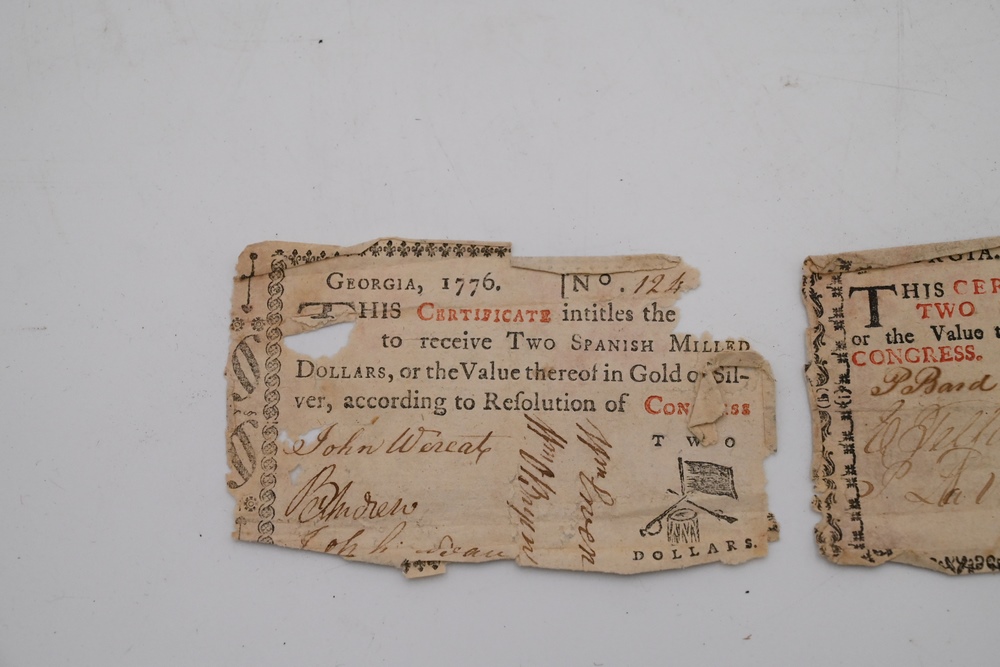 GEORGIA, 1776. No. 124
THIS CERTIFICATE intitles the
to receive TWO SPANISH MILLED
DOLLARS, or the Value thereof in Gold or Sil-
ver, according to Resolution of CONGRESS
John Wereat
TWO
DOLLARS.
GIA.
THIS CER
TWO
or the Value
CONGRESS.
P Bard